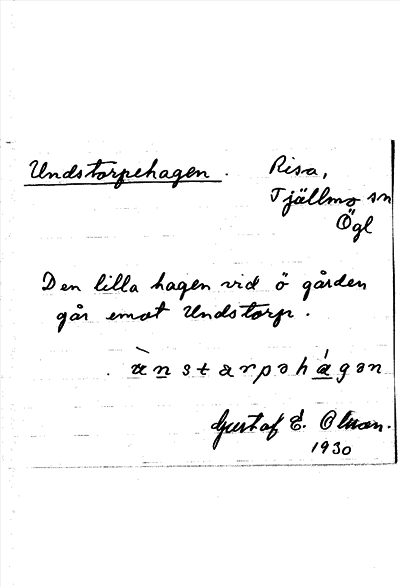 Undstorpehagen. Risa,
Tjällmo sn
Ögl
Den lilla hagen vid ö gården
går emot Undstorp.
Gustaf E. Olson.
1930